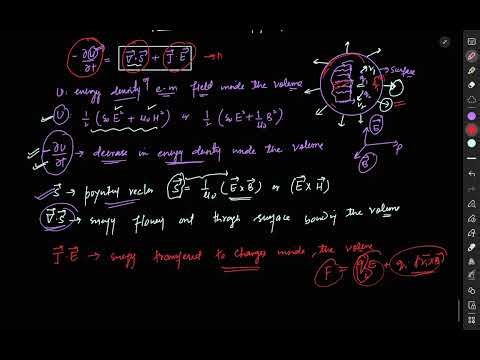 -∂U/∂t = ∇·S + J·E → 
U: energy density of e-m field inside the volume
U ½ (ε₀E² + μ₀H²) or ½ (ε₀E² + 1/μ₀ B²)
-∂U/∂t → decrease in energy density inside the volume
S → poynting vector S = 1/μ₀ (E×B) or (E×H)
∇·S → energy flowing out through surface boundary the volume
J·E → energy transferred to charges inside, the volume
F = qᵢE + qᵢ·(vᵢ×B)
surface
E
B